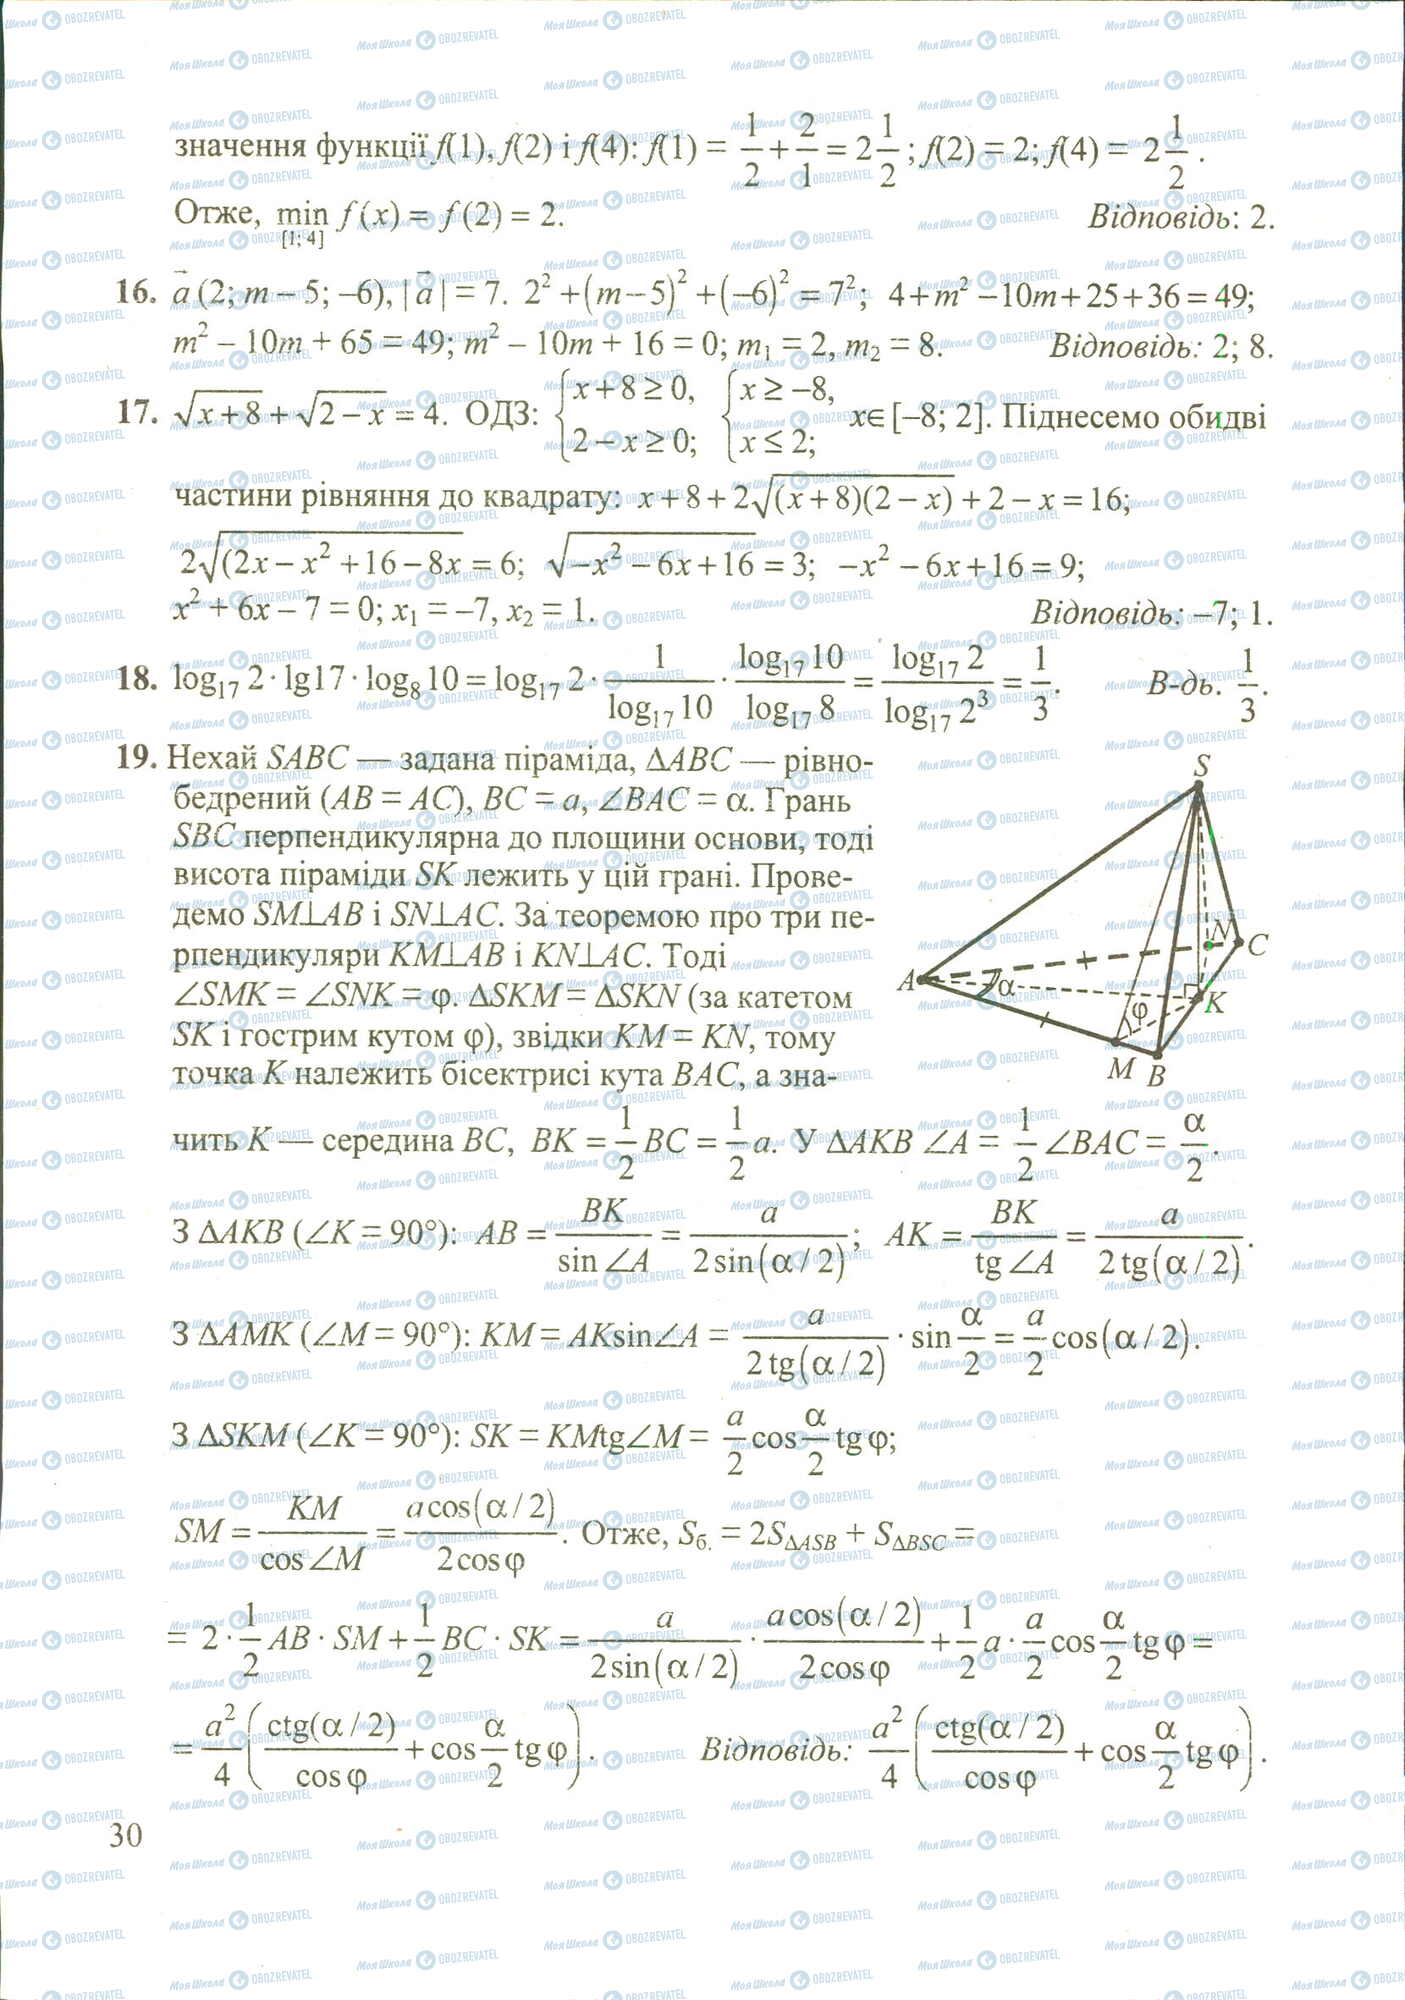 значення функції f(1), f(2) і f(4): f(1) = 1/2 + 2/1 = 2 1/2; f(2) = 2; f(4) = 2 1/2.
Отже, min f(x) = f(2) = 2. Відповідь: 2.
[1; 4]
16. a⃗ (2; m – 5; –6), | a⃗ | = 7. 2² + (m – 5)² + (–6)² = 7²; 4 + m² – 10m + 25 + 36 = 49;
m² – 10m + 65 = 49; m² – 10m + 16 = 0; m₁ = 2, m₂ = 8. Відповідь: 2; 8.
17. √(x + 8) + √(2 – x) = 4. ОДЗ: { x + 8 ≥ 0, 2 – x ≥ 0; { x ≥ –8, x ≤ 2; x∈ [–8; 2]. Піднесемо обидві
частини рівняння до квадрату: x + 8 + 2√((x + 8)(2 – x)) + 2 – x = 16;
2√((2x – x² + 16 – 8x = 6; √(–x² – 6x + 16) = 3; –x² – 6x + 16 = 9;
x² + 6x – 7 = 0; x₁ = –7, x₂ = 1. Відповідь: –7; 1.
18. log₁₇ 2 · lg17 · log₈ 10 = log₁₇ 2 · 1/log₁₇ 10 · log₁₇ 10/log₁₇ 8 = log₁₇ 2/log₁₇ 2³ = 1/3. В-дь. 1/3.
19. Нехай SABC — задана піраміда, ΔABC — рівно-
бедрений (AB = AC), BC = a, ∠BAC = α. Грань
SBC перпендикулярна до площини основи, тоді
висота піраміди SK лежить у цій грані. Прове-
демо SM⊥AB і SN⊥AC. За теоремою про три пе-
рпендикуляри KM⊥AB і KN⊥AC. Тоді
∠SMK = ∠SNK = φ. ΔSKM = ΔSKN (за катетом
SK і гострим кутом φ), звідки KM = KN, тому
точка K належить бісектрисі кута BAC, а зна-
S
N
C
A
α
K
φ
M B
чить K — середина BC, BK = 1/2 BC = 1/2 a. У ΔAKB ∠A = 1/2 ∠BAC = α/2.
З ΔAKB (∠K = 90°): AB = BK/sin ∠A = a/2sin(α / 2); AK = BK/tg ∠A = a/2 tg(α / 2).
З ΔAMK (∠M = 90°): KM = AKsin∠A = a/2 tg(α / 2) · sin α/2 = a/2 cos(α / 2).
З ΔSKM (∠K = 90°): SK = KMtg∠M = a/2 cos α/2 tg φ;
SM = KM/cos ∠M = a cos(α / 2)/2 cos φ. Отже, Sб. = 2SΔASB + SΔBSC =
= 2 · 1/2 AB · SM + 1/2 BC · SK = a/2sin(α / 2) · a cos(α / 2)/2 cos φ + 1/2 a · a/2 cos α/2 tg φ =
= a²/4 (ctg(α / 2)/cos φ + cos α/2 tg φ). Відповідь: a²/4 (ctg(α / 2)/cos φ + cos α/2 tg φ).
30